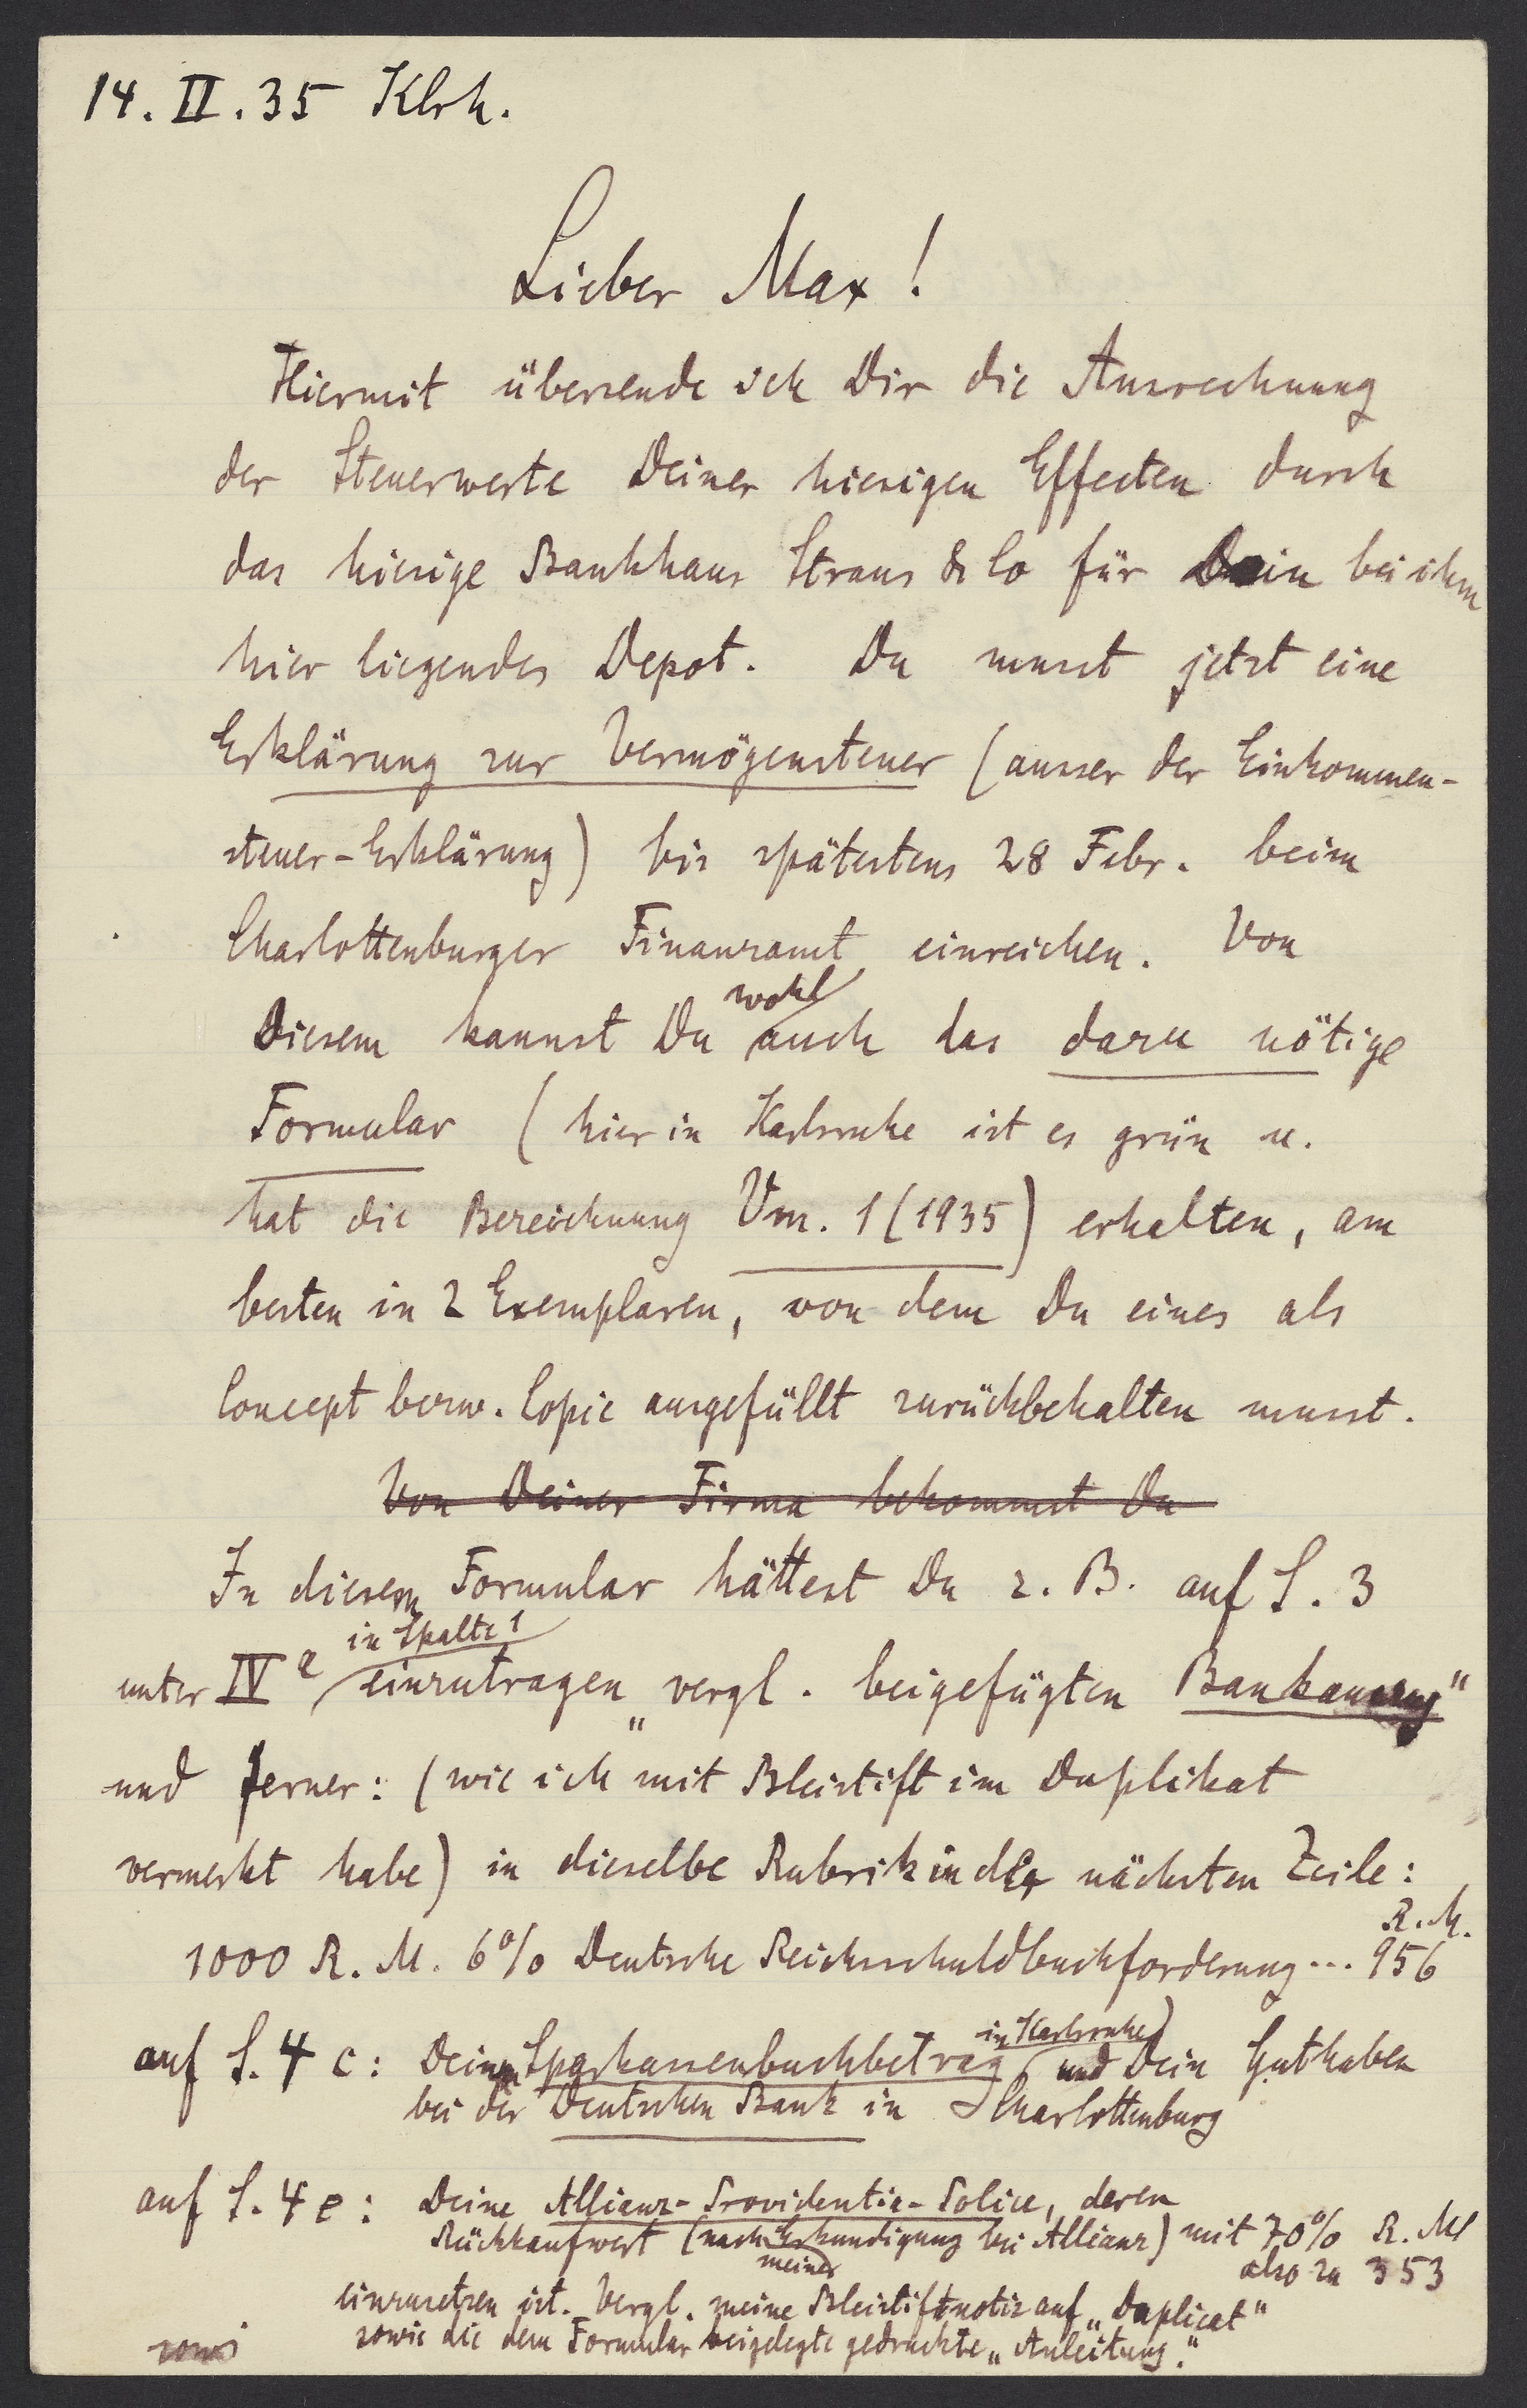 14. II. 35 Klrh.
Lieber Max!
Hiermit übersende ich Dir die Ausrechnung
der Steuerwerte Deiner hiesigen Effecten durch
das hiesige Bankhaus Straus & Co für Dein bei ihm
hier liegendes Depot. Du musst jetzt eine
Erklärung zur Vermögensteuer (ausser der Einkommen-
steuer-Erklärung) bis spätestens 28 Febr. beim
Charlottenburger Finanzamt einreichen. Von
Diesem kannst Du wohl auch das dazu nötige
Formular (hier in Karlsruhe ist es grün u.
hat die Bezeichnung Vm. 1 (1935) erhalten, am
besten in 2 Exemplaren, von dem Du eines als
Concept bezw. Copie ausgefüllt zurückbehalten musst.
Von Deiner Firma bekommst Du
In diesem Formular hättest Du z. B. auf S. 3
unter IV e in Spalte 1 einzutragen „vergl. beigefügten Bankauszug“
und ferner: (wie ich mit Bleistift im Duplikat
vermerkt habe) in dieselbe Rubrik in der nächsten Zeile:
R. M.
1000 R. M. 6% Deutsche Reichsschuldbuchforderung... 956
auf S. 4 c: Dein Sparkassenbuchbetrag in Karlsruhe und Dein Guthaben
bei der Deutschen Bank in Charlottenburg
auf S. 4 e: Deine Allianz-Providentia-Police, deren
Rückkaufwert (nach meiner Erkundigung bei Allianz) mit 70% R. M
also zu 353
einzusetzen ist. Vergl. meine Bleistiftnotiz auf „Duplicat“
sowie die dem Formular beigelegte gedruckte „Anleitung.“
sowi